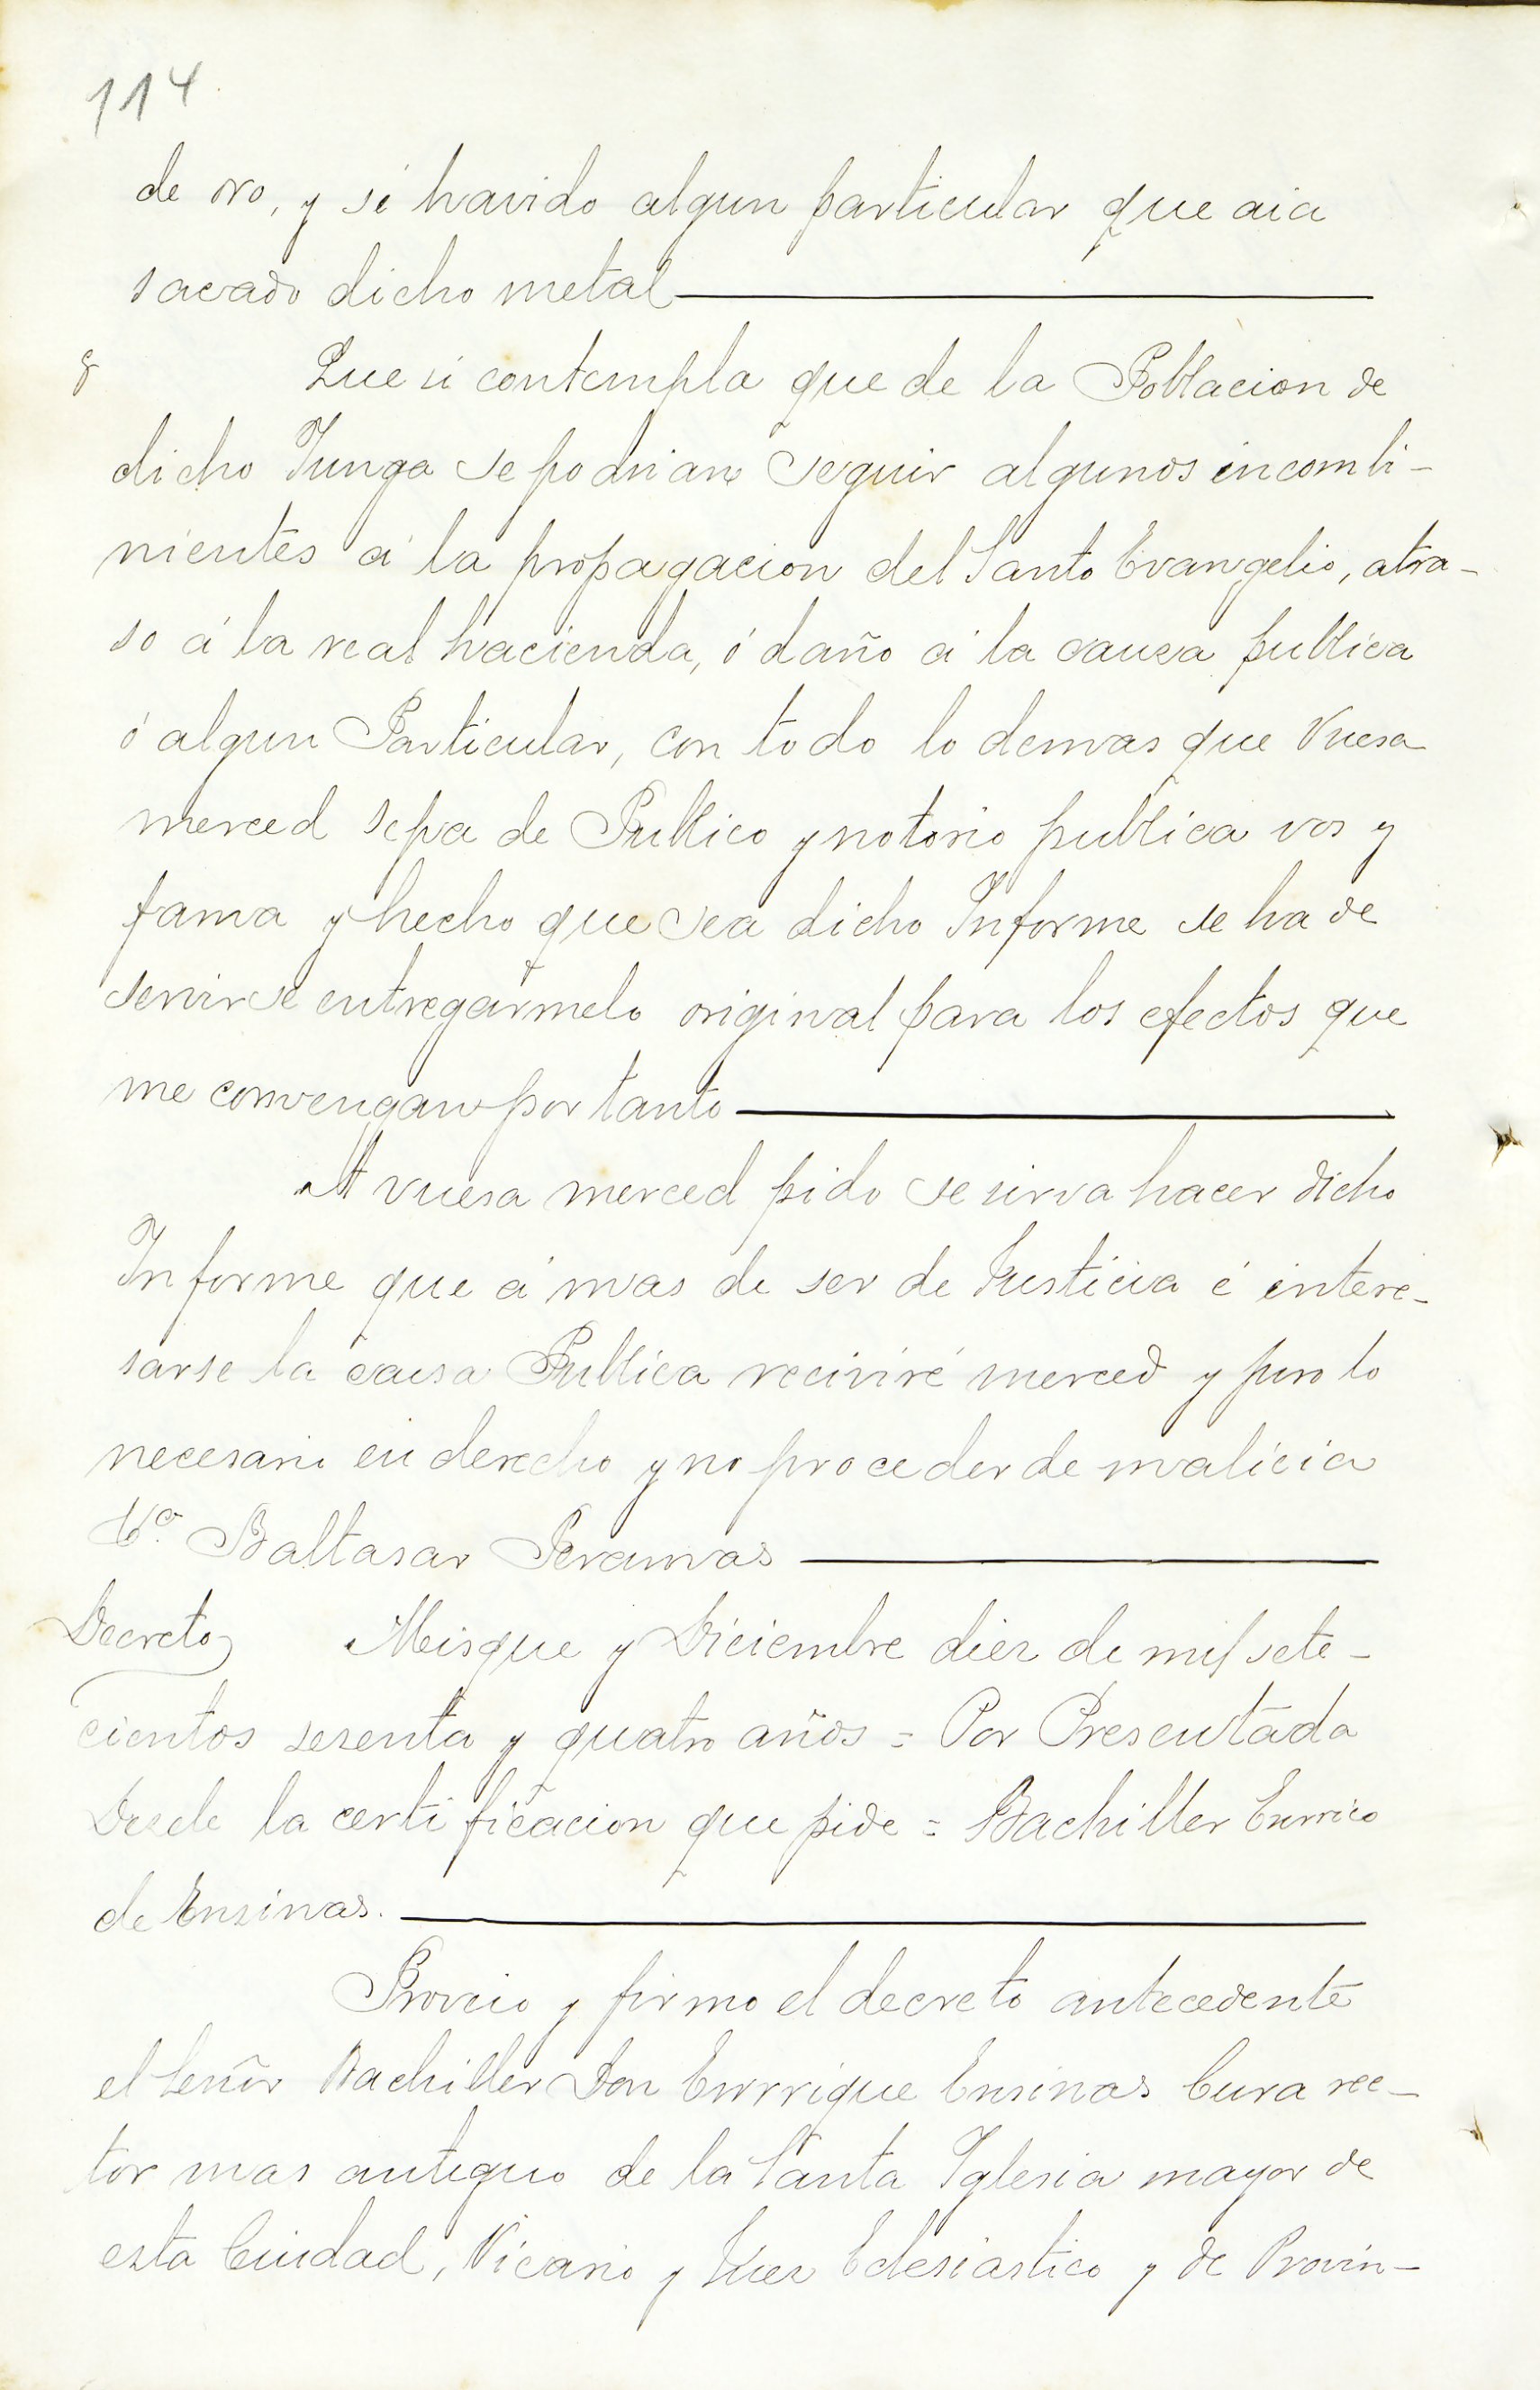 114
de oro, y si havido algun particular que aia
sacado dicho metal
8 Que si contempla que de la Poblacion de
dicho Yunga se podrian seguir algunos incombi-
nientes á la propagacion del Santo Evangelio, atra-
so á la real hacienda, ó daño á la causa publica
ó algun Particular, con todo lo demas que Vuesa
merced sepa de Publico y notorio publica vos y
fama y hecho que sea dicho Informe se ha de
servirse entregármelo original para los efectos que
me convengan por tanto
A vuesa merced pido se sirva hacer dicho
Informe que á mas de ser de Justicia é intere-
sarse la causa Publica reciviré merced y juro lo
necesario en derecho y no proceder de malicia
Baltasar Peramas
Decreto Misque y Diciembre diez de mil sete-
cientos sesenta y quatro años = Por Presentada
Desele la certificacion que pide = Bachiller Enrrico
de Ensinas.
Proveio y firmo el decreto antecedente
el Señor Bachiller Don Enrrique Ensinas Cura rec-
tor mas antiguo de la Santa Iglesia mayor de
esta Ciudad, Vicario y Juez Eclesiastico y de Provin-